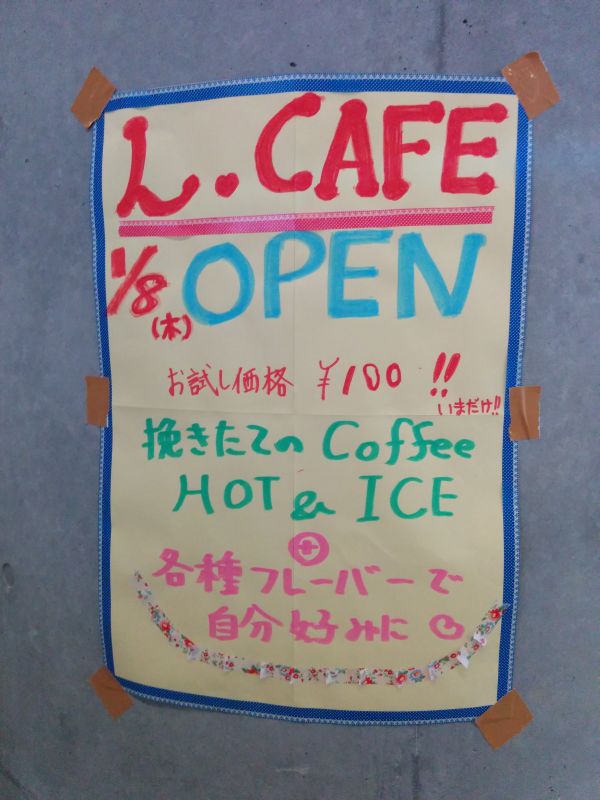 ん.CAFE
1/8(木) OPEN
お試し価格 ¥100 !!
いまだけ!!
挽きたての Coffee
HOT & ICE
+
各種フレーバーで
自分好みに